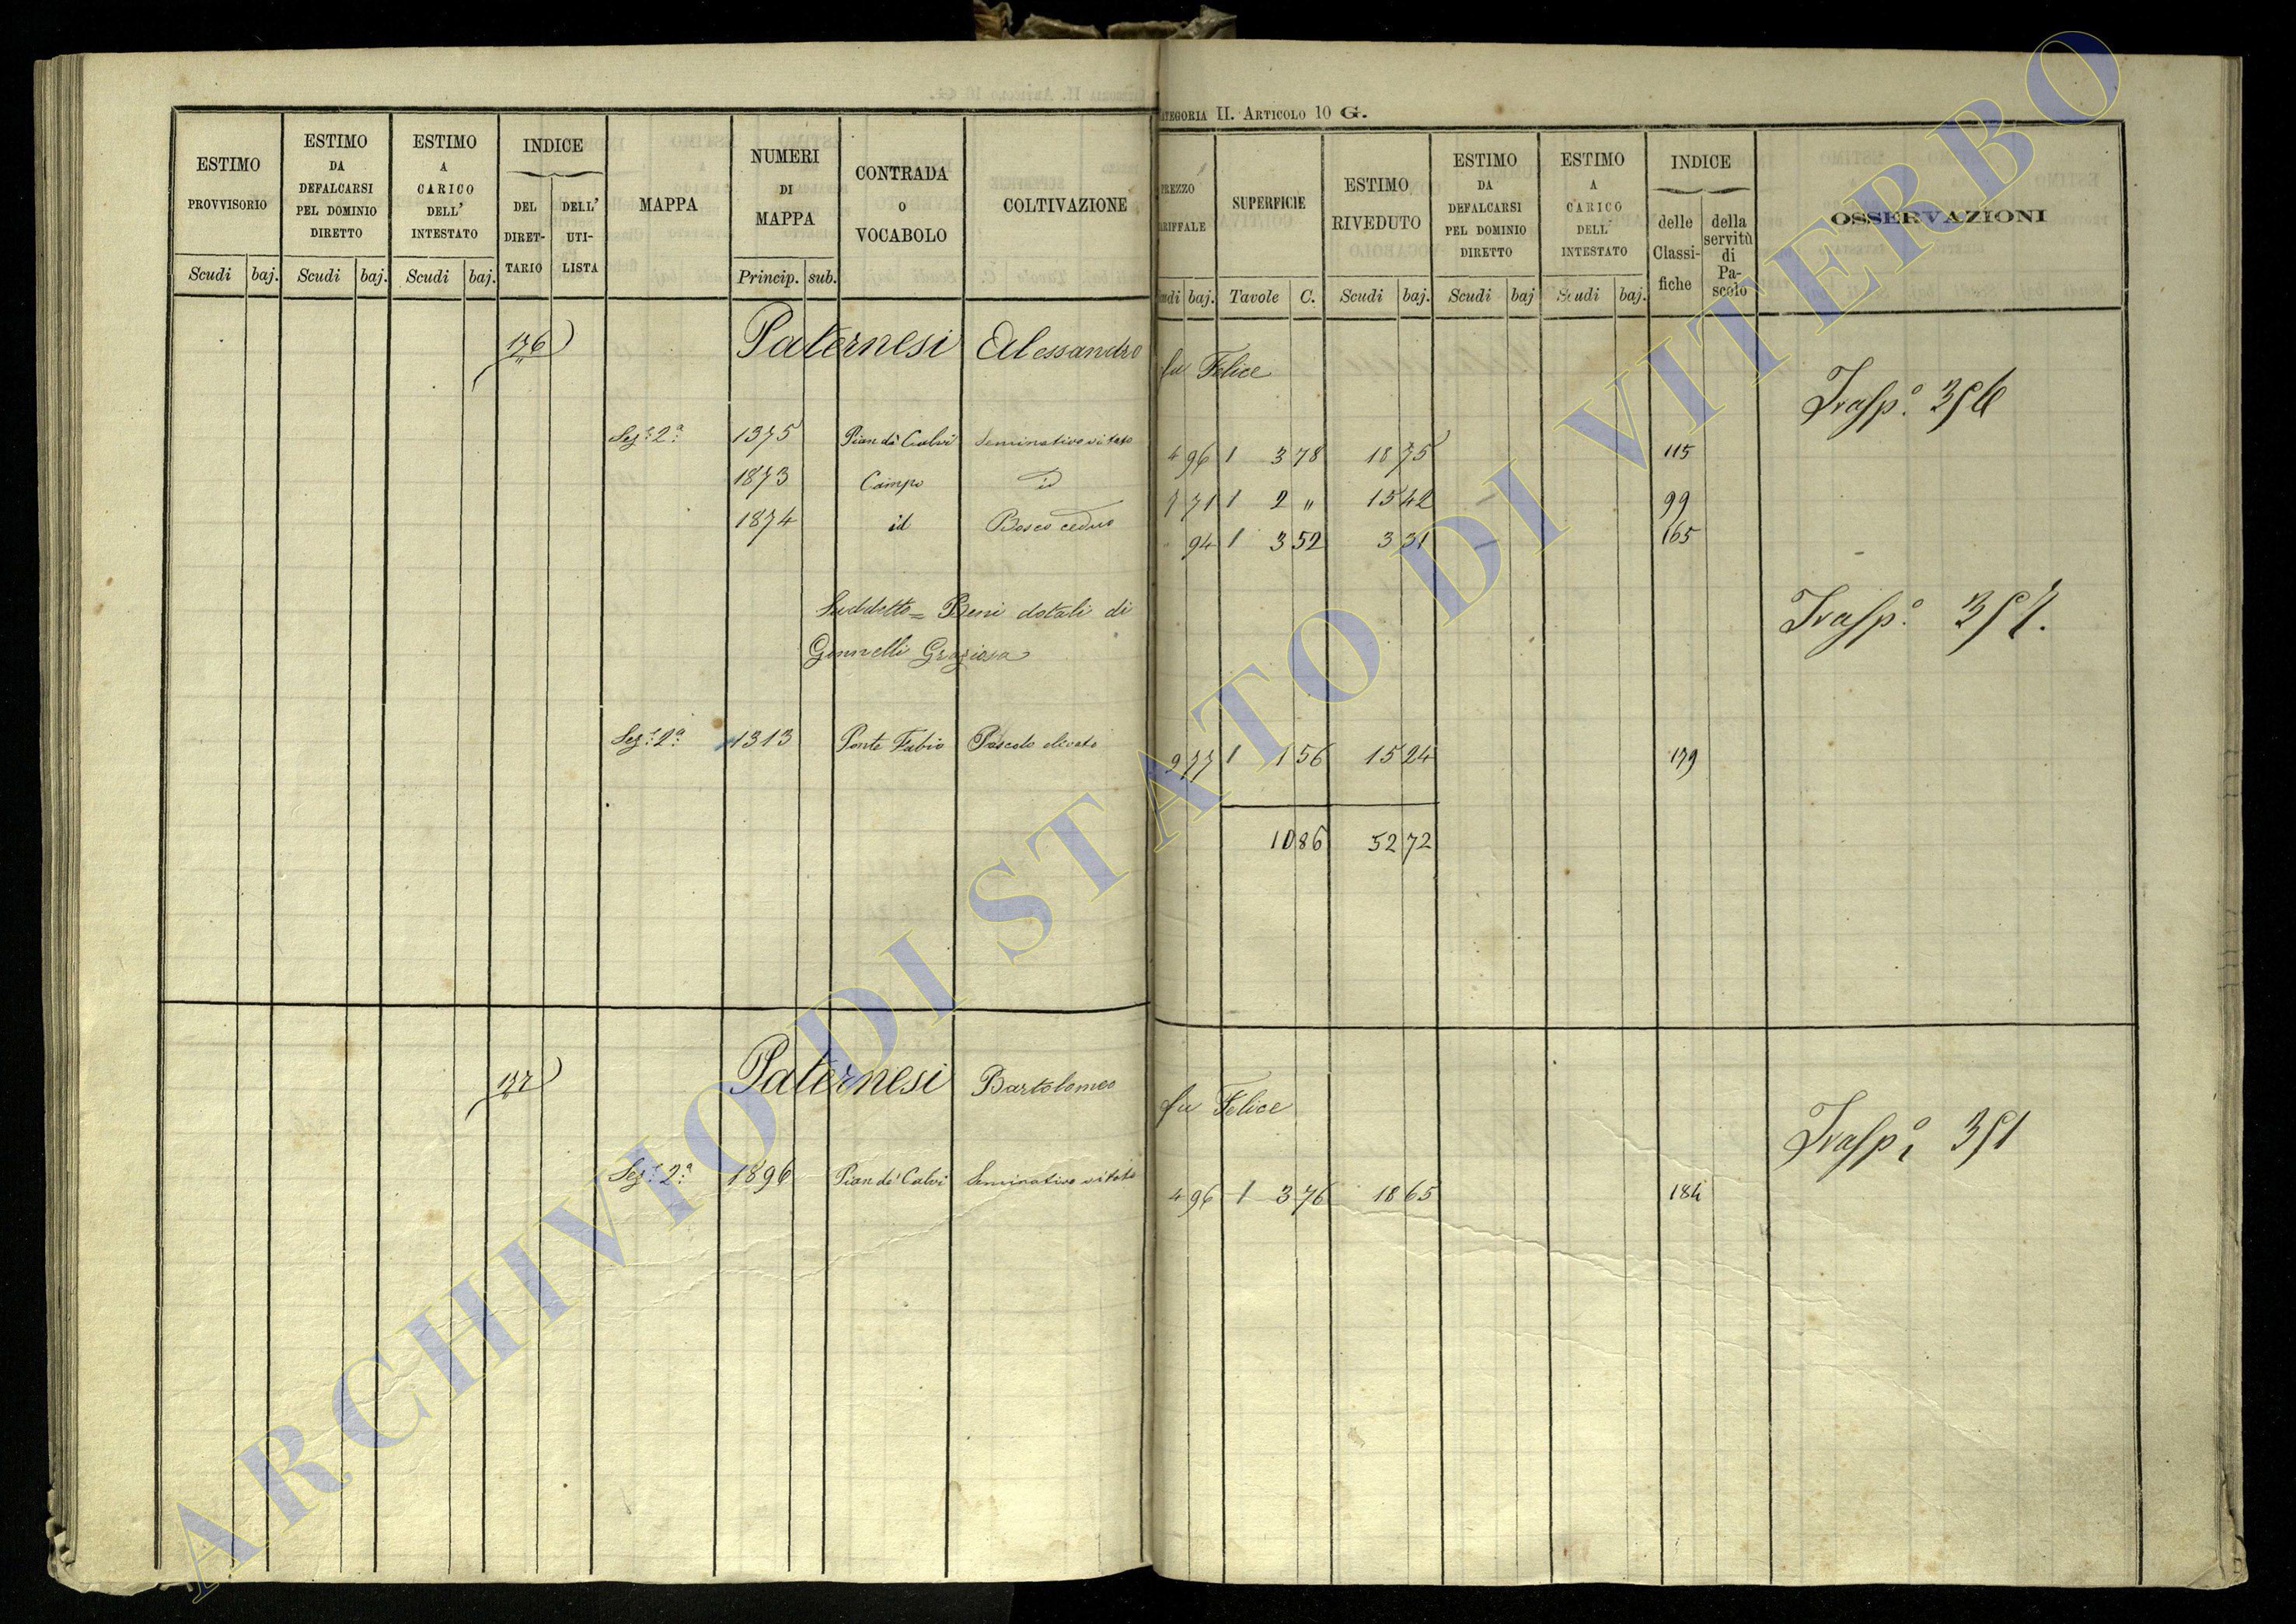 CATEGORIA II. ARTICOLO 10 G.
ESTIMO PROVVISORIO Scudi baj.
ESTIMO DA DEFALCARSI PEL DOMINIO DIRETTO Scudi baj.
ESTIMO A CARICO DELL' INTESTATO Scudi baj.
INDICE DEL DIRETTARIO DELL' UTILISTA
MAPPA
NUMERI DI MAPPA Princip. sub.
CONTRADA O VOCABOLO
COLTIVAZIONE
PREZZO TARIFFALE Scudi baj.
SUPERFICIE Tavole C.
ESTIMO RIVEDUTO Scudi baj.
ESTIMO DA DEFALCARSI PEL DOMINIO DIRETTO Scudi baj
ESTIMO A CARICO DELL' INTESTATO Scudi baj.
INDICE delle Classifiche della servitù di Pascolo
OSSERVAZIONI
176 Paternesi Alessandro fu Felice
Trasp.º 356
Sez.e 2ª 1375 Pian de' Calvi Seminativo vitato 4 96 1 3 78 18 75 115
1873 Campo id 7 71 1 2 " 15 42 99
1874 id Bosco ceduo 94 1 3 52 3 31 165
Suddetto = Beni dotali di
Gonnelli Graziosa
Trasp.º 357.
Sez.e 2ª 1313 Ponte Fabio Pascolo olivato 9 77 1 1 56 15 24 179
10 86 52 72
177 Paternesi Bartolomeo fu Felice
Trasp.º 351
Sez.e 2ª 1896 Pian de' Calvi Seminativo vitato 4 96 1 3 76 18 65 184
ARCHIVIO DI STATO DI VITERBO